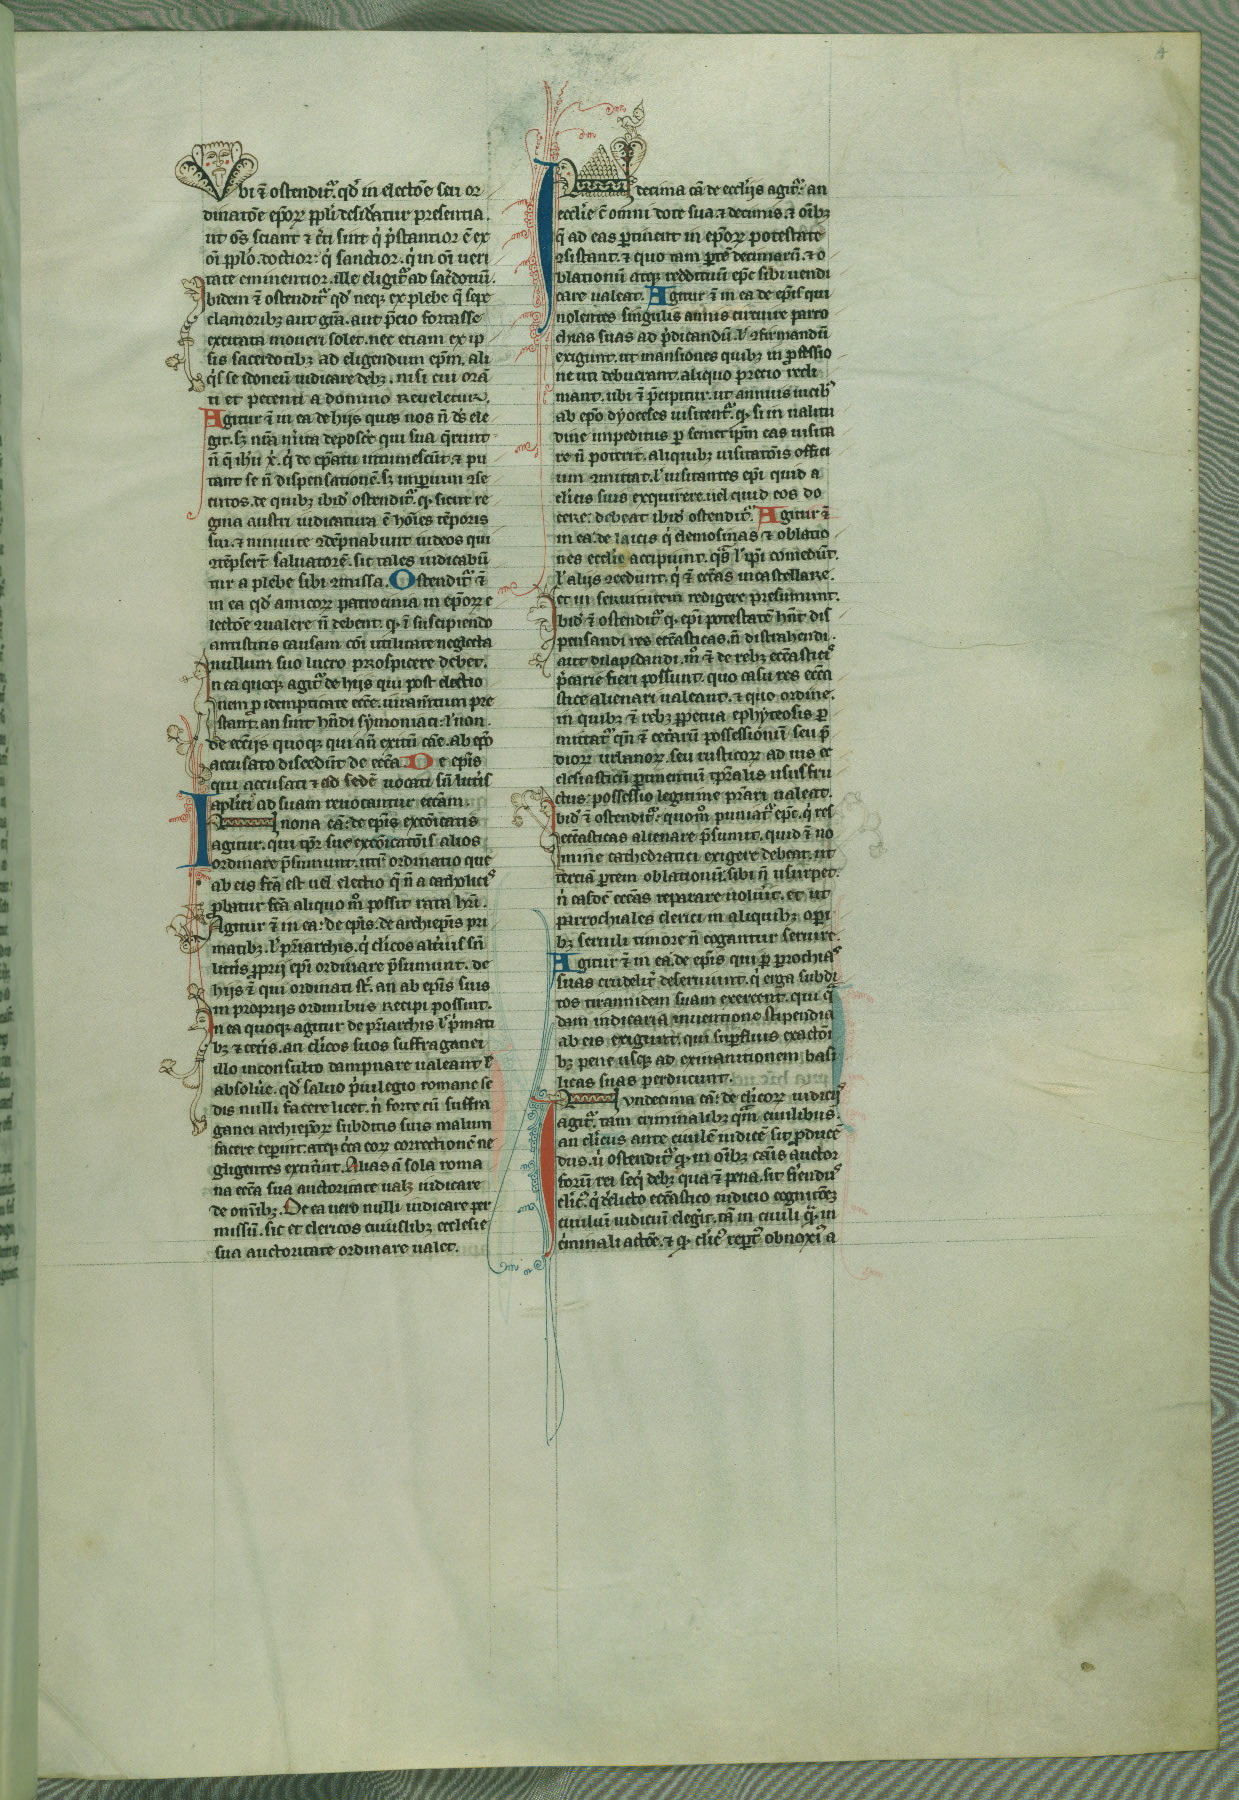 4
Vbi ē ostendit᷑. qd̓ in electōe seu or
dinatōe ep̄oꝝ pp̄li desid̓atur presentia.
ut oēs sciant ⁊ c̓ti sint q̇ p̄stantior ē ex
oī pp̄lo. doctior: q̇ sanctior. q̇ in oī uer
tute eminentior. ille eligit᷑ ad sac̓dotiū.
Ibidem ē ostendit᷑ qd̓ neqꝫ ex plebe q̄ sepe
clamoribꝫ aut gr̄a. aut p̄cio fortasse
excitata moueri solet. nec etiam ex ip
sis sacerdotibꝫ ad eligendum ep̄m. ali
q̇s se idoneū iudicare debꝫ. nisi cui orā
ti et petenti a domino reueletur.
Agitur ē in ea de hijs quos nos n̄ d̄s ele
git. sꝫ nr̄a m̓ita deposc̓e qui sua q̄runt
n̄ q̄ ih̓u x̄. q̇ de ep̄atu intumescūt. ⁊ pu
tant se n̄ dispensationē. sꝫ imp̄ium ꝯse
cutos. de quibꝫ ibid̓ ostendit᷑. ꝙ. sicut re
gina austri iudicatura ē hoīes tēporis
sui. ⁊ niniuite ꝯdēpnabunt iudeos qui
ꝯtēpsert̄ saluatorē. sic tales iudicabū
tur a plebe sibi ꝯmissa. Ostendit᷑ ē
in ea qd̓ amicoꝝ patrocinia in ep̄oꝝ e
lectōe ꝯualere n̄ debent. ꝙ. ī suscipiendo
antistitis causam cōi utilitate neglecta
nullum suo lucro prospicere debet.
In ea quoqꝫ agit᷑ de hijs qui post electio
nem p idempticate ecc̄e. iuram̄tum pre
stant. an sint hn̄di symoniaci: l̓ non.
de ecc̄ijs quoqꝫ qui an̄ exitū cāe. ab ep̄o
accusato discedūt de ecc̄a. De ep̄is
qui accusati ⁊ ad sedē uocati sn̄ litt̓is
ap̄licis ad suam reuocantur ecc̄am.
In nona cā: de ep̄is excōicatis
agitur. qui tp̄r sue excōicatōis alios
ordinare p̄sumunt. utꝝ ordinatio que
ab eis fc̄a est uel electio q̄ n̄ a catholicis
p̄batur fc̄a aliquo mō possit rata hr̄i.
Agitur ē in ea: de ep̄is. de archiep̄is pri
matibꝫ. l̓ p̄riarchis. q̇ cl̓icos alt̓ius sn̄
litt̓is pp̄rij ep̄i ordinare p̄sumunt. de
hijs ē qui ordinati st̄. an ab ep̄is suis
in proprijs ordinibus recipi possint.
In ea quoqꝫ agitur de p̄riarchis l̓ p̓mati
bꝫ ⁊ cet̓is. an cl̓icos suos suffraganei
illo inconsulto dampnare ualeant l̓
absolu̓e. qd̓ saluo p̓uilegio romane se
dis nulli facere licet. n̄ forte cū suffra
ganei archiep̄oꝝ subditis suis malum
facere cep̓int. atqꝫ c̓ca eoꝝ correctionē ne
gligentes extit̓int. Alias ā sola roma
na ecc̄a sua auctoritate ualꝫ iudicare
de omībꝫ. De ea uero nulli iudicare per
missū. sic et clericos cuiuslibꝫ ecclesie
sua auctoritate ordinare ualet.
In decima cā de ecc̄ijs agit᷑: an
ecc̄lie c̄ omni dote sua. ⁊ decimis. ⁊ oībꝫ
q̄ ad eas p̄tinent in ep̄oꝝ potestate
ꝯsistant. ⁊ quo tam p̄te decimarū. ⁊ o
blationū atqꝫ reddituū ep̄c sibi uendi
care ualeat. Agitur ē in ea de ep̄is qui
nolentes singulis annis circuire parro
chias suas ad p̓dicandū. l̓ ꝯfirmandū
exigunt. ut mansiones quibꝫ in p̄fessio
ne uti debuerant. aliquo precio redi
mant. ubi ē p̄cipitur. ut annuis uicibꝫ
ab ep̄o dyoceses uisitent᷑. ꝙ. si in ualitu
dine impeditus p semet ip̄m eas uisita
re n̄ poterit. aliquibꝫ uisitatōis offici
um ꝯmittat. l̓ uisitantes ep̄i quid a
cl̓icis suis exquirere. uel quid eos do
cere: debeat ibid̓ ostendit᷑. Agitur ē
in ea. de laicis q̇ elemosinas ⁊ oblatio
nes ecc̄lie accipiunt. q̄s l̓ ip̄i comedūt.
l̓ alijs ꝯcedunt. q̇ ē ecc̄as incastellare.
et in seruitutem redigere p̄resumunt.
Ibid̓ ē ostendit᷑ ꝙ. ep̄i potestatē hn̄t dis
pensandi res ecc̄asticas. n̄ distrahendi.
aut dilapidandi. mō ē de rebꝫ ecc̄asticis
p̓carie fieri possunt. quo casu res ecc̄a
stice alienari ualeant. ⁊ quo ordine.
in quibꝫ ē rebꝫ pp̄etua emphyteosis p̄
mittat᷑ qn̄ ē cet̓arū possessionū seu p̄
dioꝝ urbanoꝝ. seu rusticoꝝ ad ius ec
clesiasticū p̄tinentiū tp̄ralis ususfru
ctus: possessio legitime p̄rari ualeat.
Ibid̓ ē ostendit᷑: quomō puniat᷑ ep̄c. q̇ res
ecc̄asticas alienare p̄sumit. quid ē no
mine cathedratici exigere debeat. ut
terciā p̄tem oblationū. sibi n̄ usurpet.
n̄ easdē ecc̄as reparare nolu̓it. et ut
parrochiales clerici in aliquibꝫ op̓i
bꝫ seruili timore n̄ cogantur seruire.
Agitur ē in ea. de ep̄is qui p p̄rochias
suas crudelit̓ deseruiunt. q̇ erga subdi
tos tirannidem suam exercent. qui q̄
dam indicaria inuentione stipendia
ab eis exigunt. qui sup̄fluis exactōi
bꝫ pene usqꝫ ad exinanitionem basi
licas suas perducunt.
In undecima cā: de cl̓icoꝝ iudicijs
agit᷑. tam criminalibꝫ q̄m ciuilibus.
an cl̓icus ante ciuilē iudicē sit p̄ducē
dus. ū ostendit᷑ ꝙ. in oībꝫ cāis auctor
forū rei seq̇ debꝫ qua ē pena. sit fi̓endus
cl̓ic̄. q̇ relicto ecc̄astico iudicio cognitōeꝫ
ciuiliū iudicū eleg̓it. tā in ciuili q̄. in
c̓minali actōe. ⁊ ꝙ. cl̓ic̄ rep̄t᷑ obnoxi᷒ a